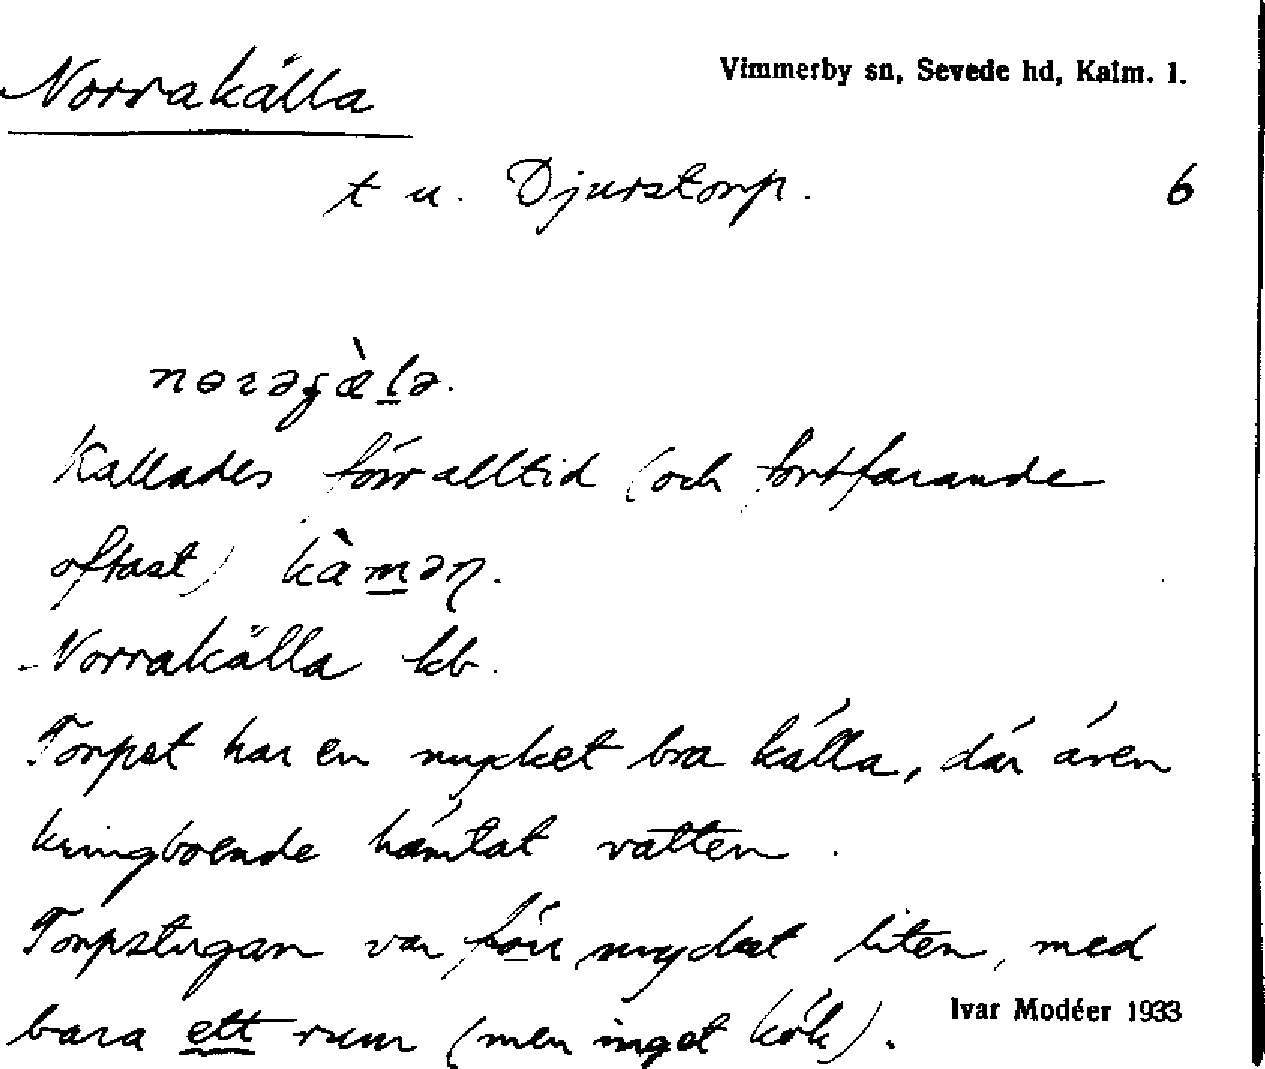 Norrakälla
Vimmerby sn, Sevede hd, Kalm. l.
t u. Djurstorp.
6
Kallades förr alltid (och fortfarande
oftast) kàmən.
Norrakälla kb.
Torpet har en mycket bra källa, där även
kringboende hämtat vatten.
Torpstugan var förr mycket liten, med
bara ett rum (men inget kök).
Ivar Modéer 1933